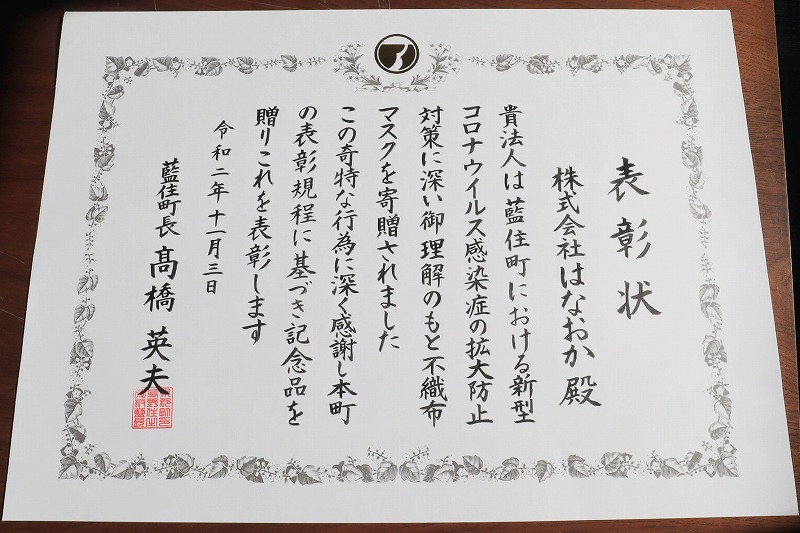 表彰状
株式会社はなおか 殿
貴法人は藍住町における新型
コロナウイルス感染症の拡大防止
対策に深い御理解のもと不織布
マスクを寄贈されました
この奇特な行為に深く感謝し本町
の表彰規程に基づき記念品を
贈りこれを表彰します
令和二年十一月三日
藍住町長 髙橋英夫